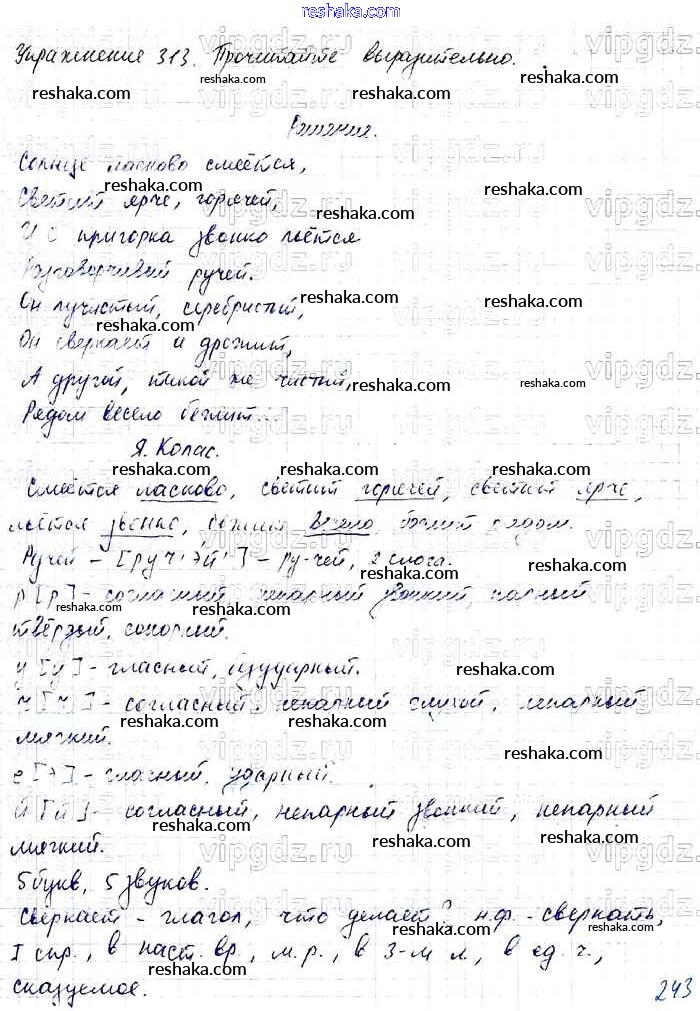 reshaka.com
Упражнение 313. Прочитайте выразительно.
Слияния.
Солнце ласково смеётся,
Светит ярче, горячей,
И с пригорка звонко льётся
Разговорчивый ручей.
Он лучистый, серебристый,
Он сверкает и дрожит,
А другой, такой же чистый,
Рядом весело бежит...
Я. Колас.
Смеётся ласково, светит горячей, светит ярче,
льётся звонко, бежит весело, бежит рядом.
Ручей – [руч'эй'] – ру-чей, 2 слога.
р [р] - согласный, непарный звонкий, парный
твёрдый, сонорный.
у [у] - гласный, безударный.
ч [ч'] - согласный, непарный глухой, непарный
мягкий.
е [э] - гласный, ударный.
й [й'] - согласный, непарный звонкий, непарный
мягкий.
5 букв, 5 звуков.
Сверкает - глагол, что делает? н.ф. - сверкать,
I спр., в наст. вр., м.р., в 3-м л., в ед. ч.,
сказуемое.
243